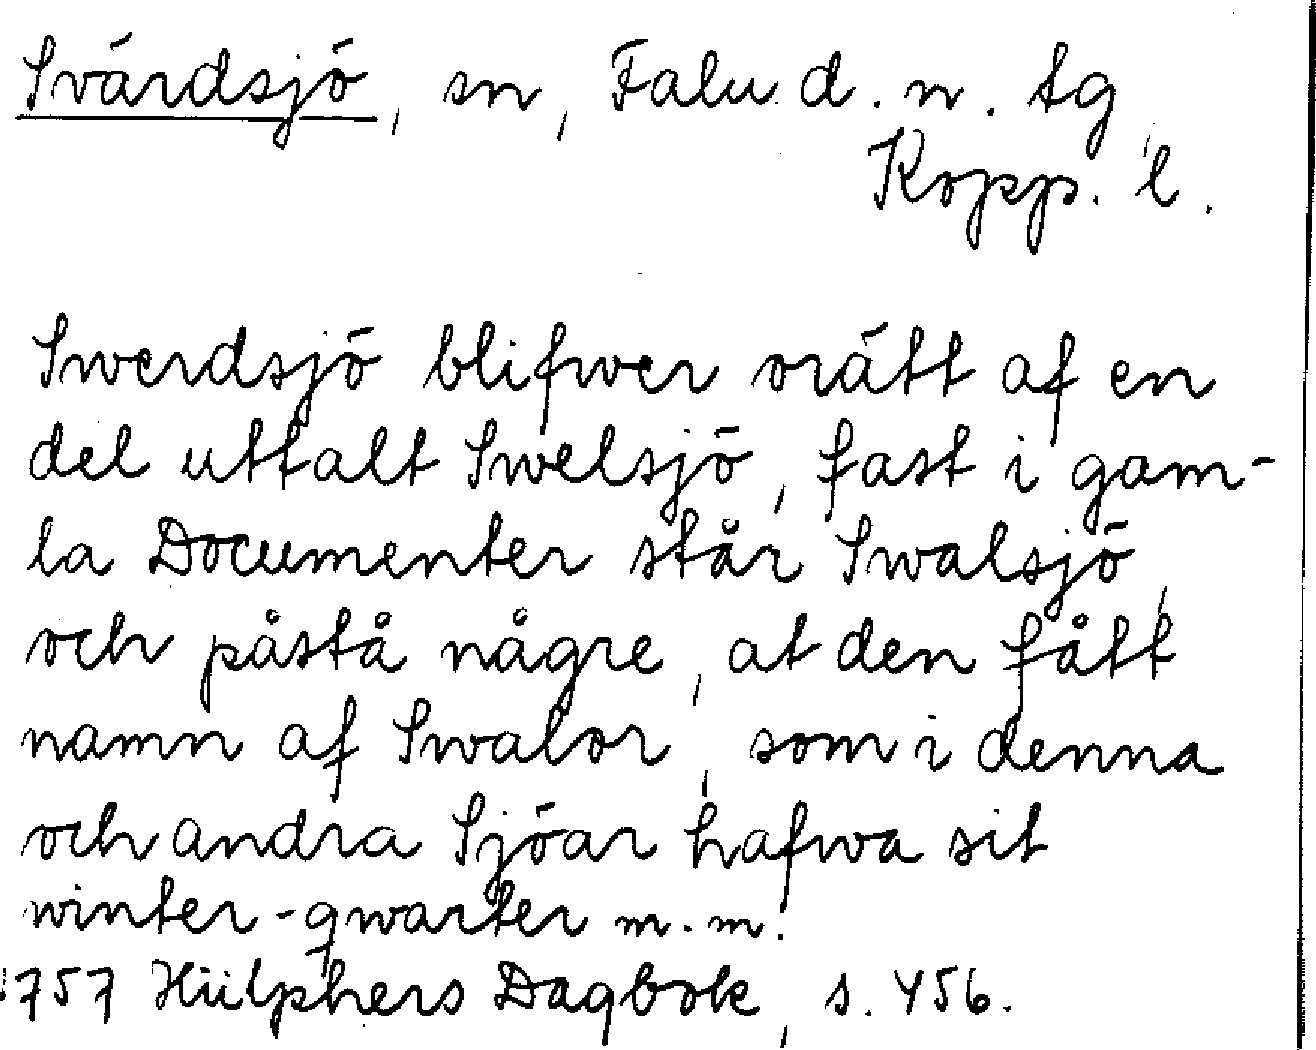 Svärdsjö, sn, Falu d. n. tg,
Kopp. l.
Swerdsjö blifwer orätt af en
del uttalt Swelsjö, fast i gam-
la Documenter står Swalsjö,
och påstå någre, at den fått
namn af Swalor, som i denna
och andra Sjöar hafwa sit
winter-qwarter m. m.
1757 Hülphers Dagbok, s. 456.